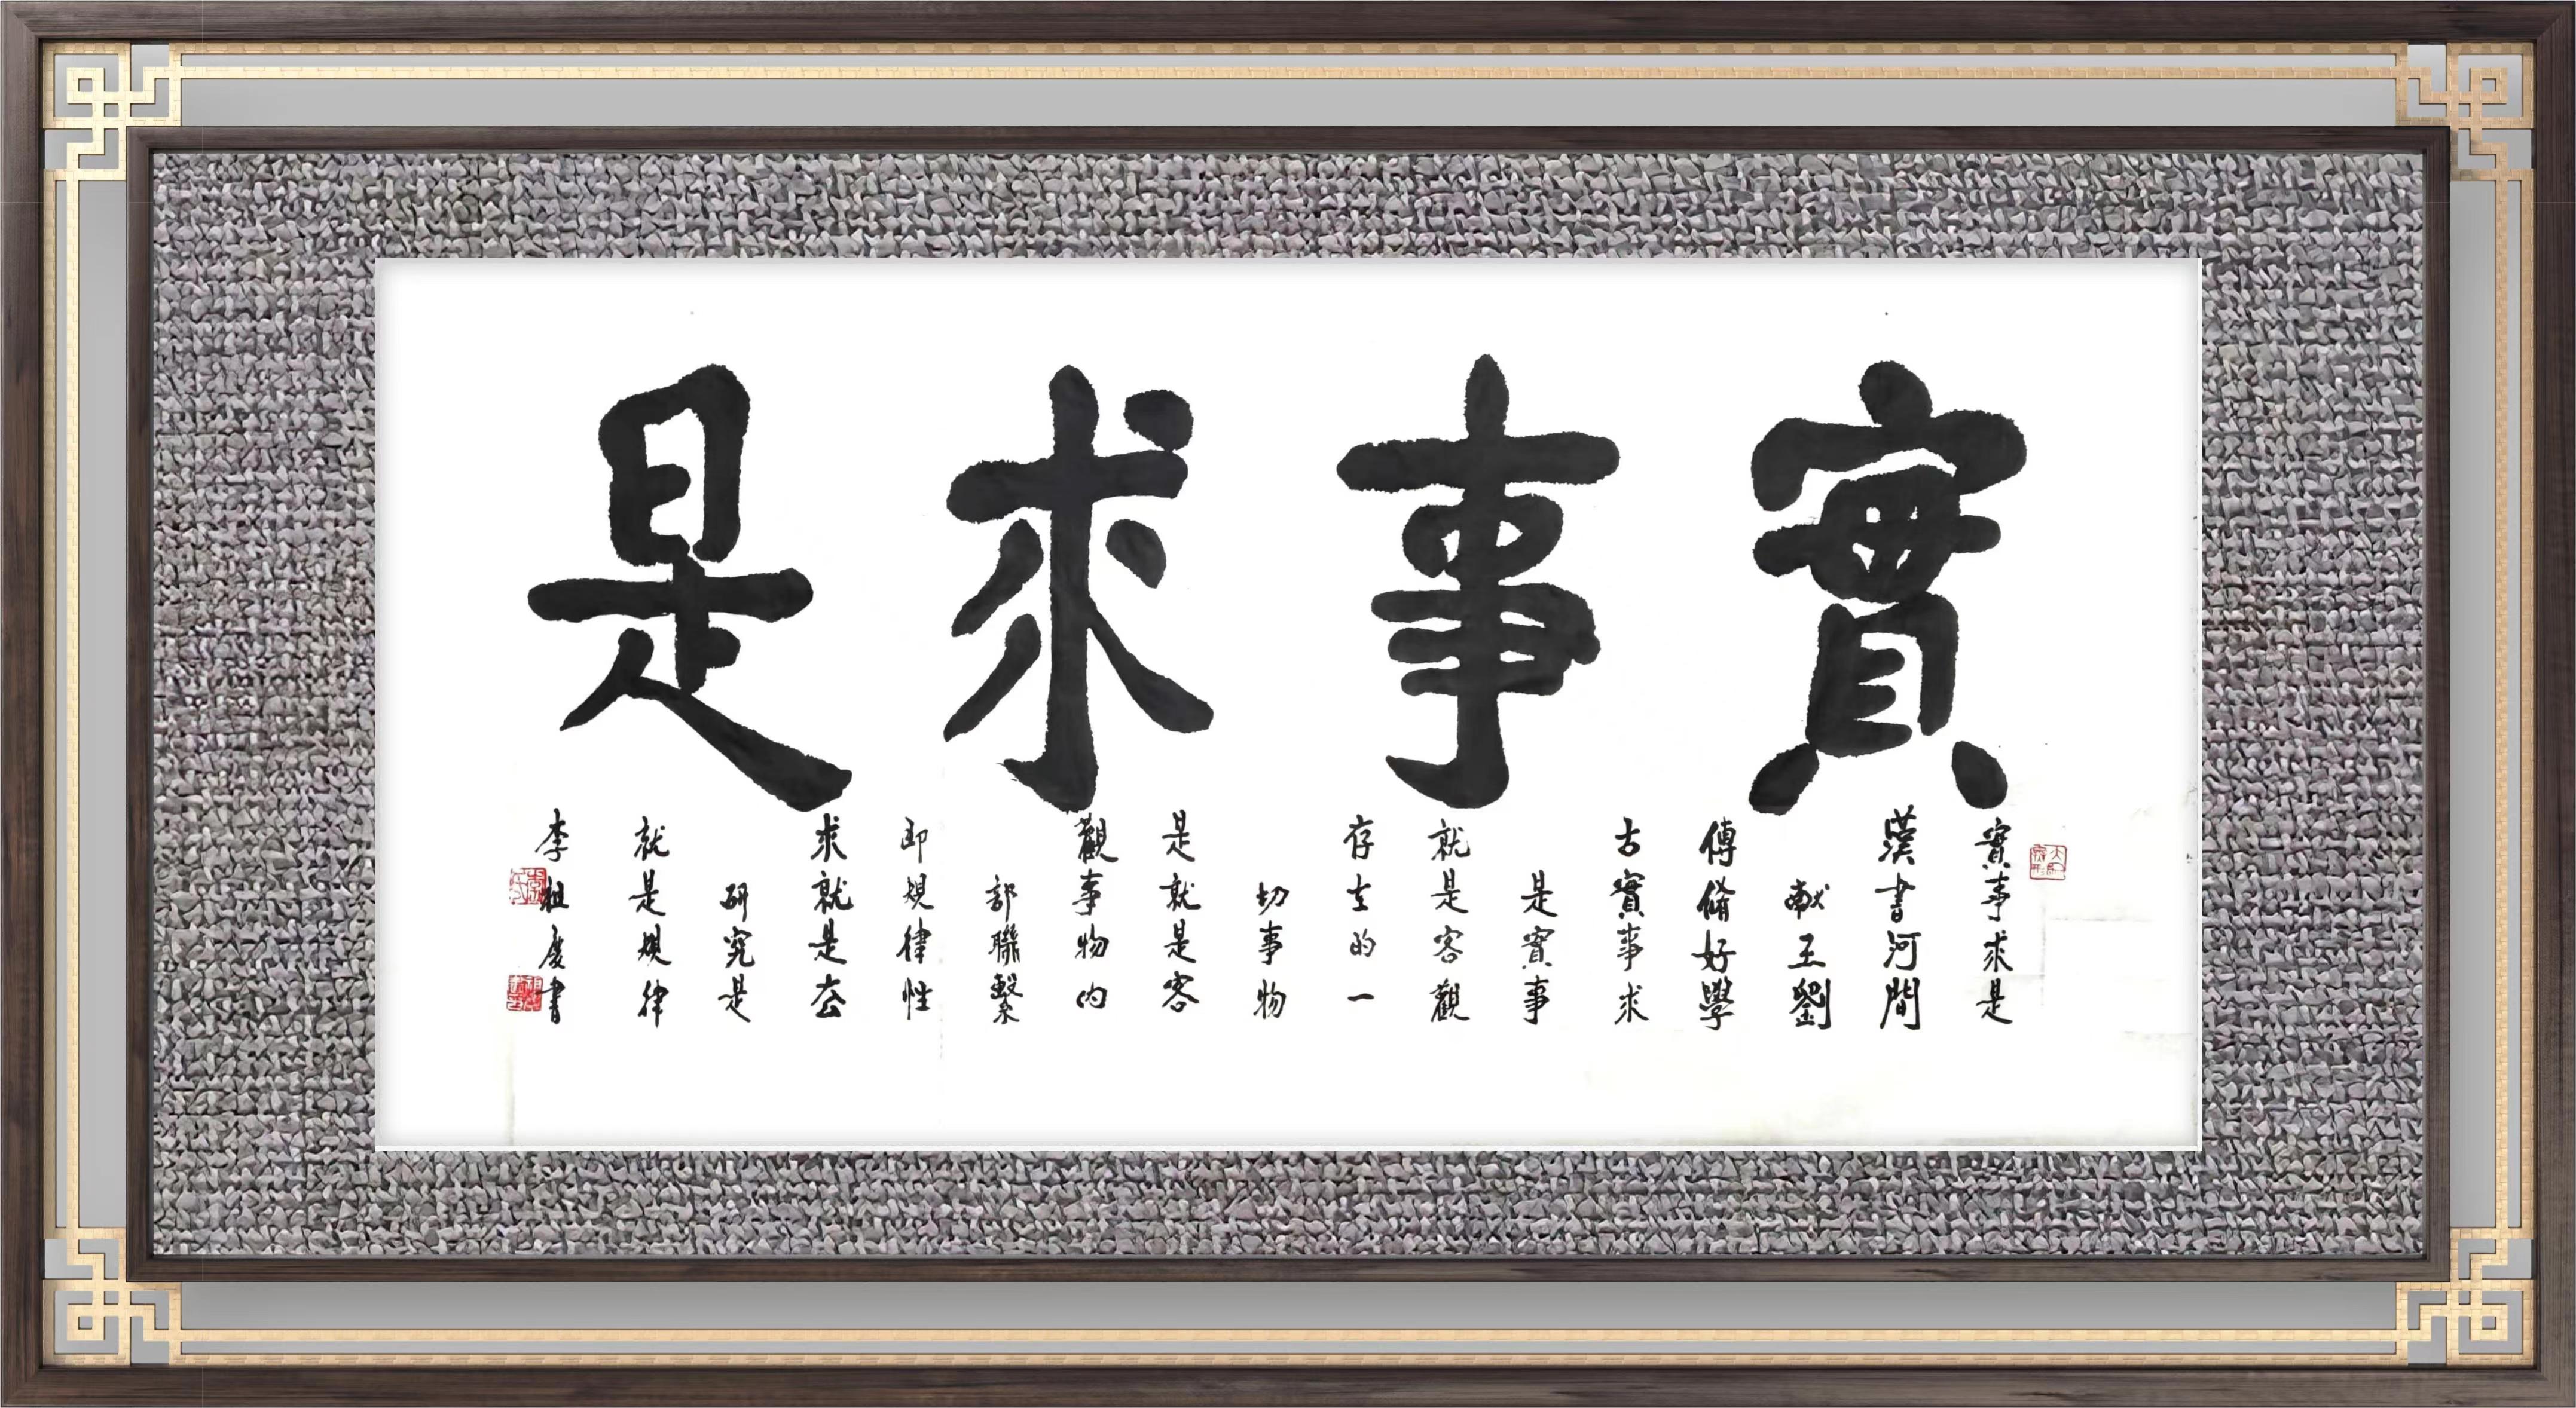 實事求是
實事求是
漢書河間
献王劉
傳脩好學
古實事求
是實事
就是客觀
存在的一
切事物
是就是客
觀事物内
部聯繫
即規律性
求就是去
研究是
就是規律
李祖慶書